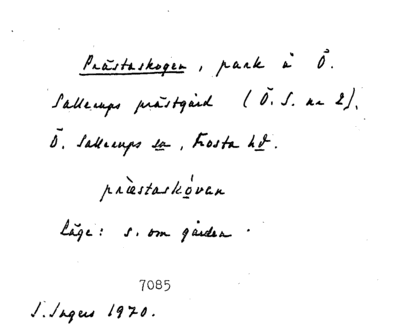 Prästaskogen, park å Ö.
Sallerups prästgård (Ö. S. nr 2),
Ö. Sallerups sn, Frosta hd.
prästaskóvan
Läge: s. om gården.
7085
S. Ingers 1970.